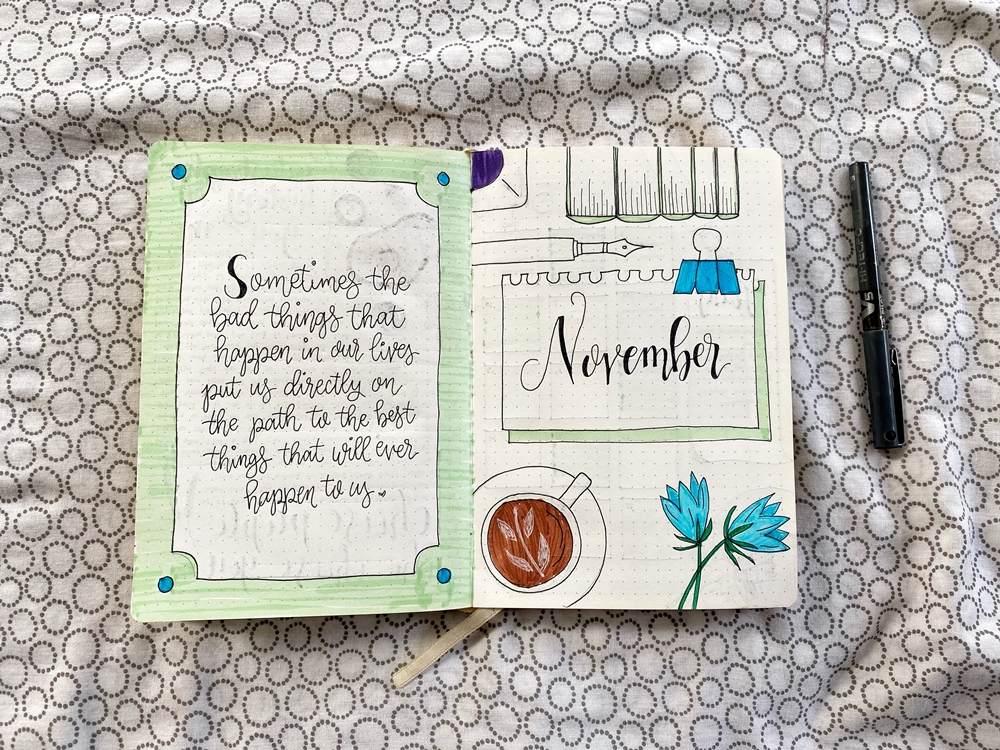 Sometimes the
bad things that
happen in our lives
put us directly on
the path to the best
things that will ever
happen to us
November
V5